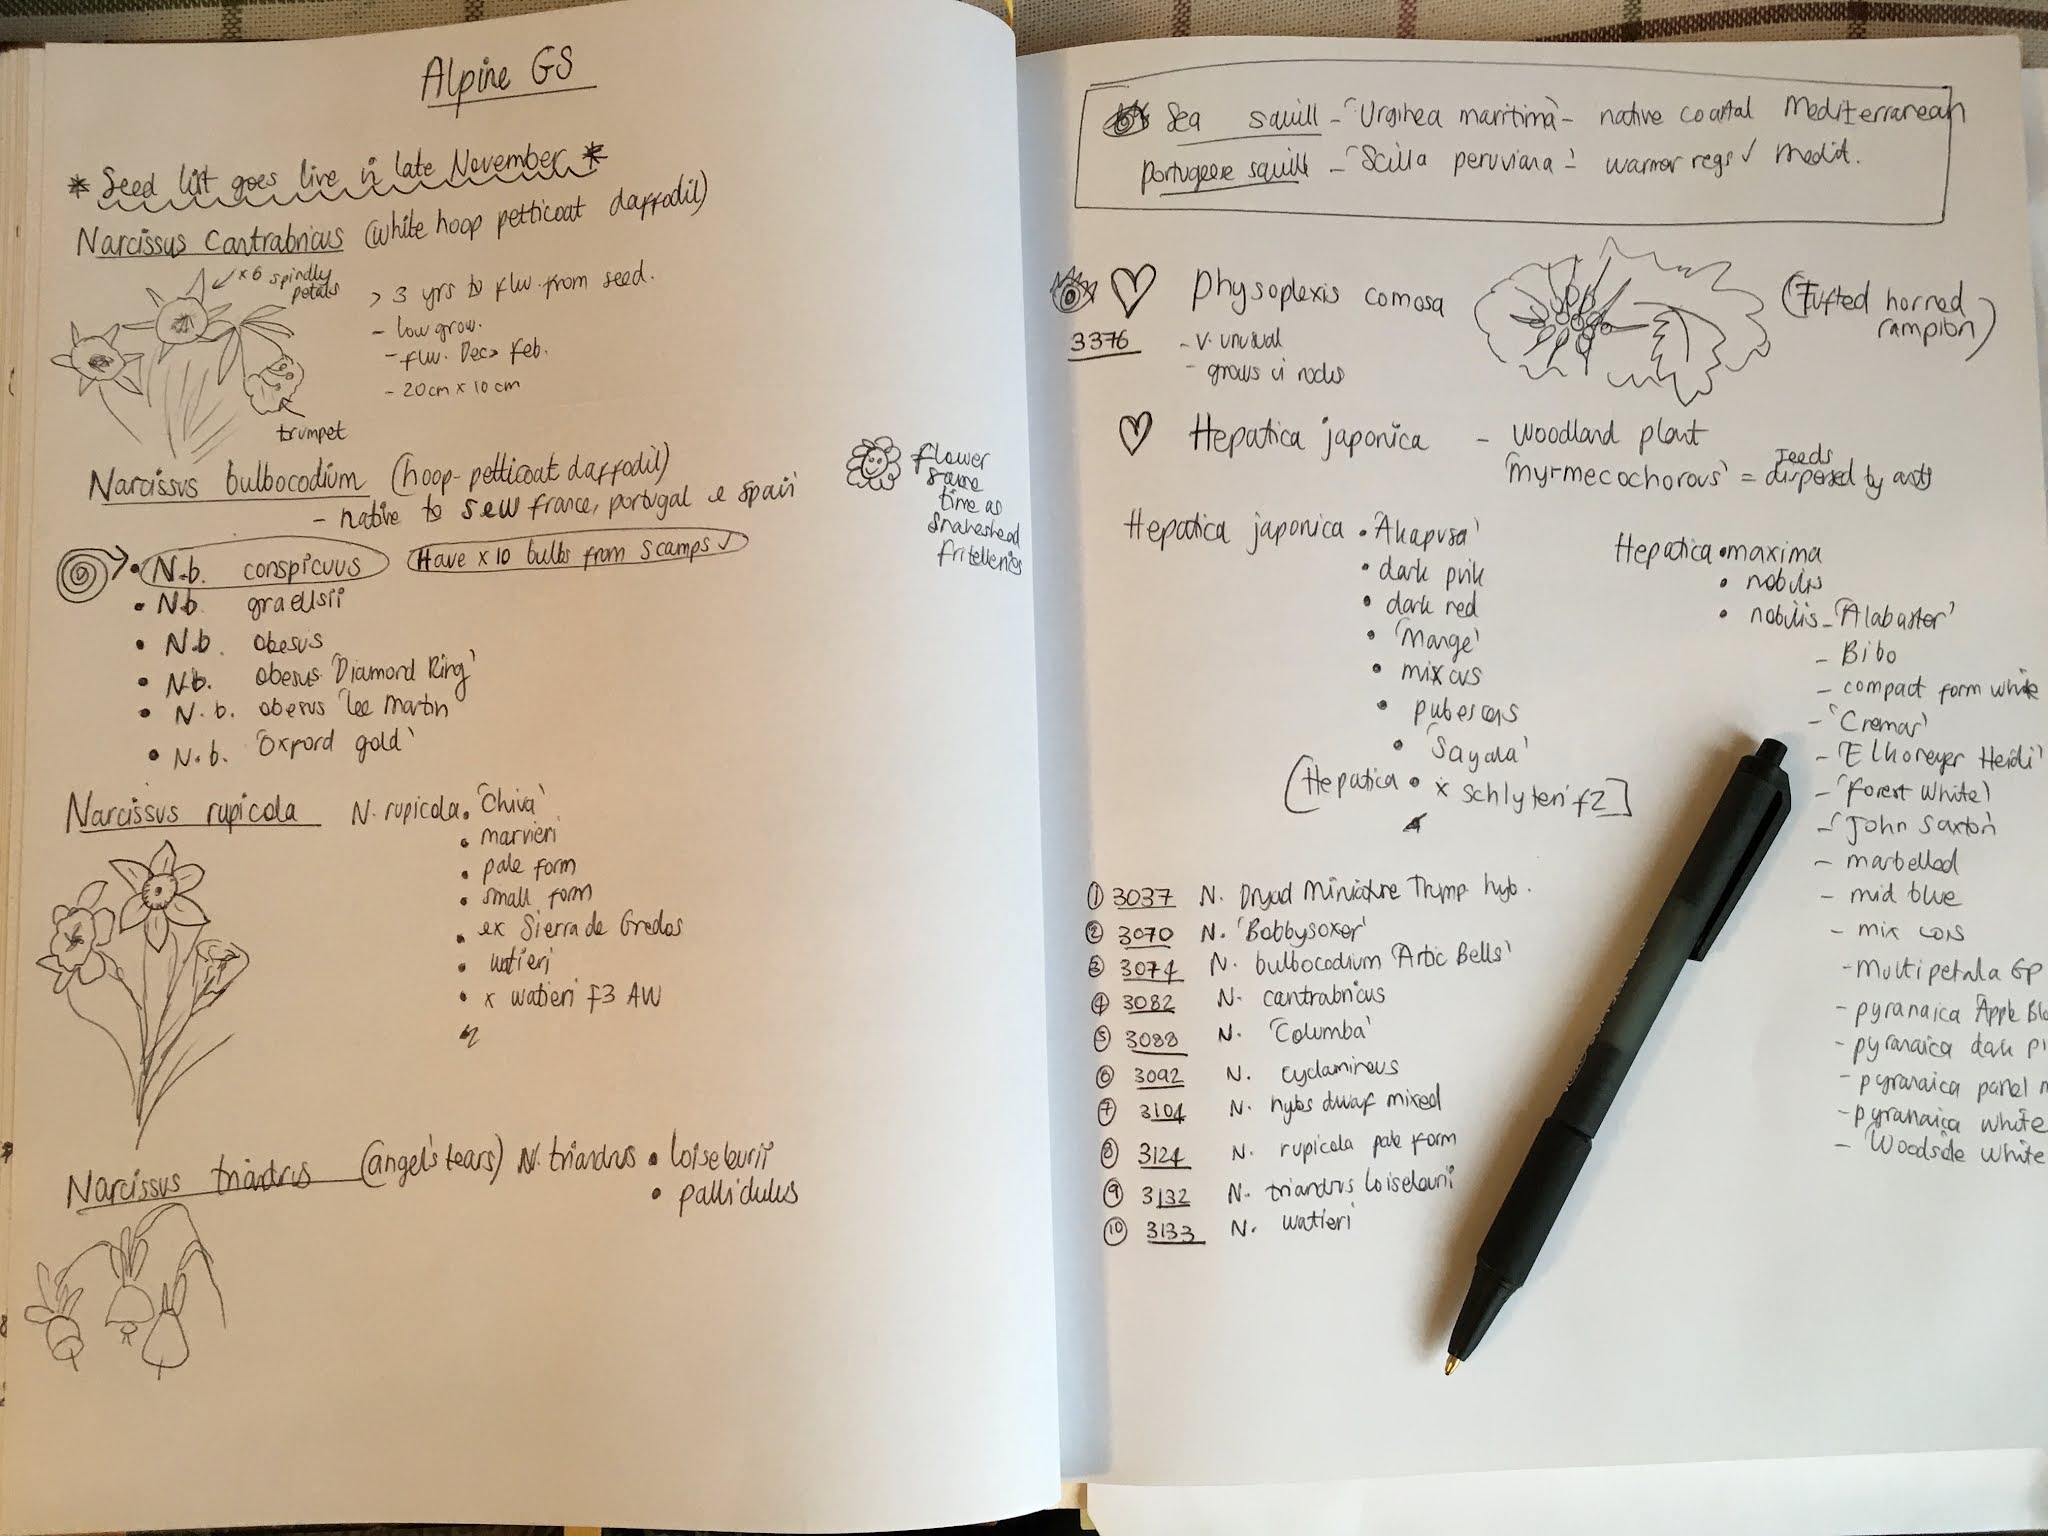 Alpine GS
* Seed list goes live in late November *
Narcissus Cantabricus (white hoop petticoat daffodil)
x 6 spindly
petals
> 3 yrs to flw from seed.
- low grow.
- flw. Dec > Feb.
- 20cm x 10cm
trumpet
Narcissus bulbocodium (hoop-petticoat daffodil)
- native to s&w france, portugal & spain
flower
same
time as
snakeshead
fritelleries
• N.b. conspicuus Have x 10 bulbs from Scamps ✓
• N.b. graellsii
• N.b. obesus
• N.b. obesus 'Diamond Ring'
• N.b. obesus 'Lee Martin
• N.b. 'Oxford gold'
Narcissus rupicola N. rupicola • 'Chiva'
• marvieri
• pale form
• small form
• ex Sierra de Gredos
• watieri
• x watieri F3 AW
Narcissus triandrus (angel's tears) N. triandrus • loiseleurii
• pallidulus
Sea squill - 'Urginea maritima' - native coastal Mediterranean
portugese squill - 'Scilla peruviana' - warmer regs ✓ medit.
♡ Physoplexis comosa (Tufted horned
rampion)
3376
- v. unusual
- grows in rocks
♡ Hepatica japonica - woodland plant
'myrmecochorous' = seeds dispersed by ants
Hepatica japonica • 'Akapusa'
• dark pink
• dark red
• 'Mange'
• mix cvs
• pubescens
• 'Sayaka'
[Hepatica • x schlyteri f2]
Hepatica • maxima
• nobilis
• nobilis - 'Alabaster'
- Bibo
- compact form white
- 'Cremar'
- 'Elkoneyer Heidi'
- 'Forest White'
- 'John Saxton'
- marbelled
- mid blue
- mix cols
- multipetala Gp
- pyranaica 'Apple Blo
- pyranaica dark pi
- pyranaica
- pyranaica white
- 'Woodside White
① 3037 N. Dryad Miniature Trump hyb.
② 3070 N. 'Bobbysoxer'
③ 3074 N. bulbocodium 'Artic Bells'
④ 3082 N. cantabricus
⑤ 3088 N. 'Columba'
⑥ 3092 N. cyclamineus
⑦ 3104 N. hybs dwaf mixed
⑧ 3124 N. rupicola pale form
⑨ 3132 N. triandrus loiseleurii
⑩ 3133 N. watieri